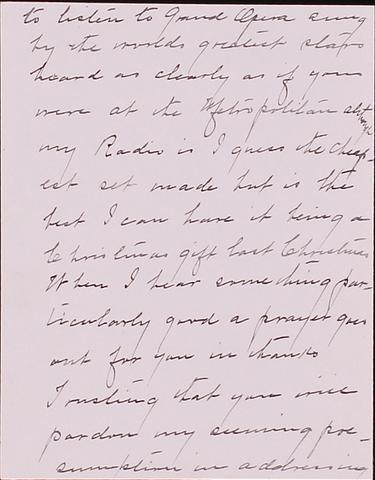 to listen to Grand Opera sung
by the worlds greatest stars
heard as clearly as if you
were at the Metropolitan although
my Radio is I guess the cheap-
est set made but is the
best I can have it being a
Christmas gift last Christmas
When I hear something par-
ticularly good a prayer goes
out for you in thanks
Trusting that you will
pardon my seeming pre-
sumption in addressing